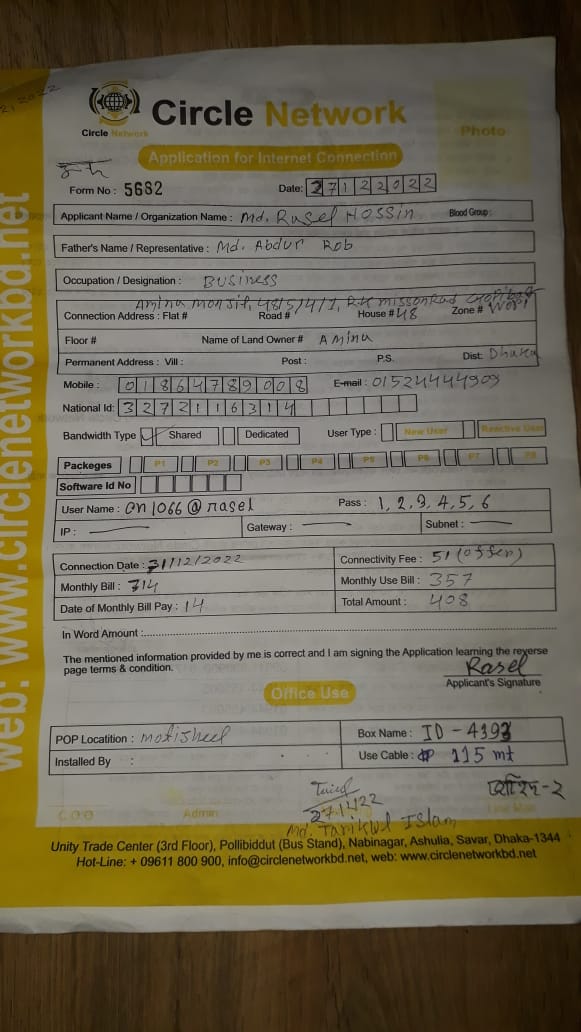 2, 2022
Circle Network
Circle Network
Photo
Application for Internet Connection
Form No : 5682
Date: 27122022
Applicant Name / Organization Name : Md. Rasel Hossin Blood Group :
Father's Name / Representative : Md. Abdur Rob
Occupation / Designation : Business
Amina monjil, 48/5/4/1, R.K misson Road
Connection Address : Flat # Road # House # 48 Zone #
Floor # Name of Land Owner # Amina
Permanent Address : Vill : Post : P.S. Dist: Dhaka
Mobile : 01864789008 E-mail : 01524444909
National Id: 3272116314
Bandwidth Type Shared Dedicated User Type : New User Reactive User
Packeges P1 P2 P3 P4 P5 P6 P7 P8
Software Id No
User Name : cn1066@rasel Pass : 1, 2, 3, 4, 5, 6
IP : Gateway : Subnet :
Connection Date : 31/12/2022 Connectivity Fee : 51 (offer)
Monthly Bill : 714 Monthly Use Bill : 357
Date of Monthly Bill Pay : 14 Total Amount : 408
In Word Amount :
The mentioned information provided by me is correct and I am signing the Application learning the reverse
page terms & condition.
Rasel
Applicant's Signature
Office Use
POP Locatition : motijheel Box Name : ID - 4393
Installed By : Use Cable : 115 mt
271222
C.O.O Admin Line Man
Md. Tarikul Islam
Unity Trade Center (3rd Floor), Pollibiddut (Bus Stand), Nabinagar, Ashulia, Savar, Dhaka-1344
Hot-Line: + 09611 800 900, info@circlenetworkbd.net, web: www.circlenetworkbd.net
web: www.circlenetworkbd.net